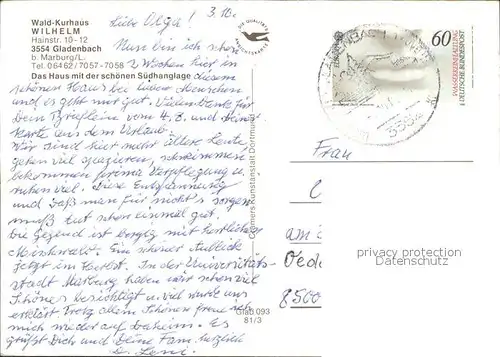 Wald-Kurhaus
WILHELM
Hainstr. 10-12
3554 Gladenbach
b. Marburg/L.
Tel. 06462/7057-7058
Das Haus mit der schönen Südhanglage
Liebe Olga! 3.10.
Nun bin ich schon
2 Wochen hier in diesem
schönen Haus bei lieben Menschen
und es geht mir gut. Vielen Dank für
Dein Brieflein vom 4.8. und Deine
Karte aus dem Urlaub.
Wir sind hier mehr ältere Leute,
gehen viel spazieren, schwimmen
bekommen prima Verpflegung u.
ruhen viel. Diese Entspannung
und daß man für nichts sorgen
muß tut schon einmal gut.
Die Gegend ist bergig mit herrlichem
Mischwald. Ein schöner Anblick
jetzt im Herbst. In der Universitäts-
stadt Marburg haben wir schon viel
Schönes besichtigt u. viel wurde uns
erklärt. Trotz allem Schönen freue ich
mich wieder auf Daheim. Es
grüßt Dich und Deine Fam. herzlich
D. Leni.
Cramers Kunstanstalt Dortmund
Glad 093
81/3
60
DEUTSCHE BUNDESPOST
3554
Frau
am
Oed
8500
privacy protection
Datenschutz